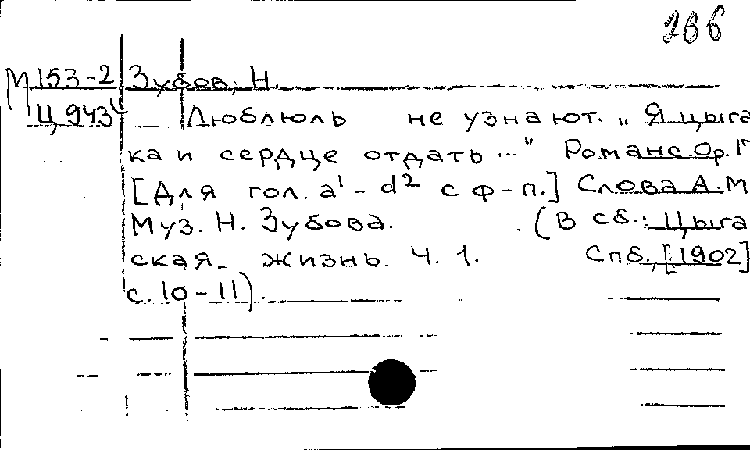 166
М 153-2 Зубов, Н.
Ц 943 Люблюль не узнают. „Я цыга
ка и сердце отдать..." Романс Ор. 1
[Для гол. a¹-d² с ф-п.] Слова А. М
Муз. Н. Зубова. (В сб.: Цыга
ская жизнь. Ч. 1. Спб., [1902]
с. 10-11).